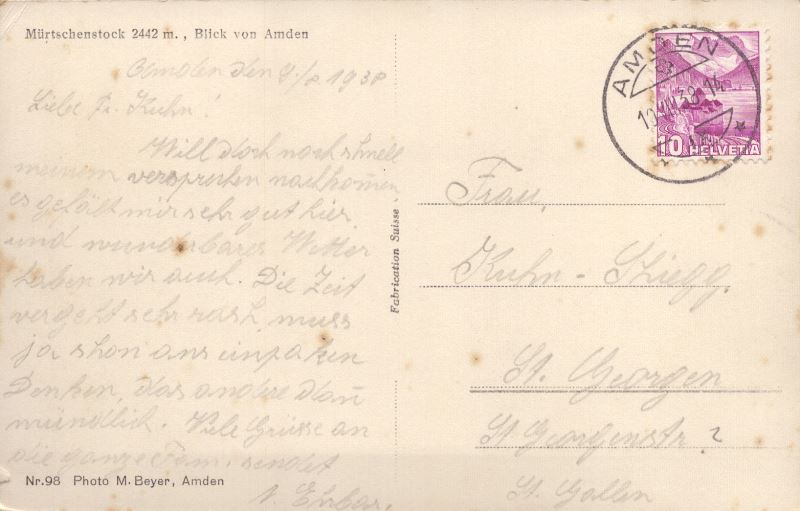 Mürtschenstock 2442 m., Blick von Amden
Amden den 9./8 1938
Liebe Fr. Kuhn!
Will doch noch schnell
meinem versprechen nachkommen
es gefällt mir sehr gut hier
und wunderbares Wetter
haben wir auch. Die Zeit
vergeht sehr rasch, muss
ja schon ans einpaken
Denken, das andere dan
mündlich. Viele Grüsse an
die ganze Fam. sendet
Nr.98 Photo M. Beyer, Amden
Fabrication Suisse
AMDEN
10 HELVETIA
Frau,
Kuhn-
St. Georgen
St Georgenstr ?
St. Gallen